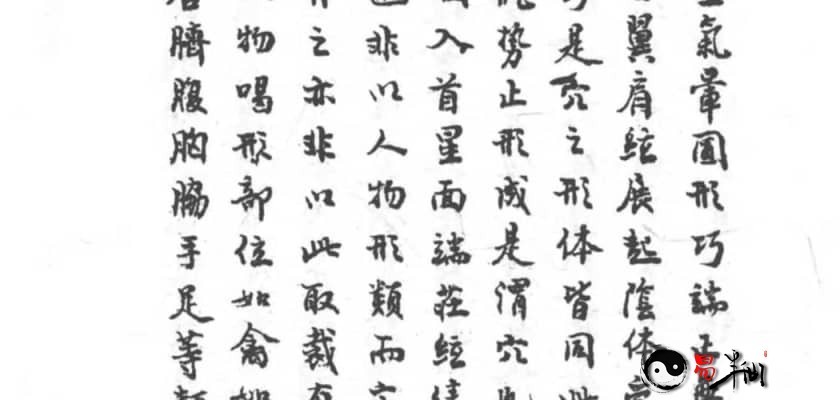 氣暈圓形巧端正
翼肩展起陰体
是穴之形体皆同此
龍势止形成是謂穴
入首星面端莊
非以人物形類而穴
之亦非以此取裁
物喝形部位如禽
臍腹胸脇手足等
易半仙